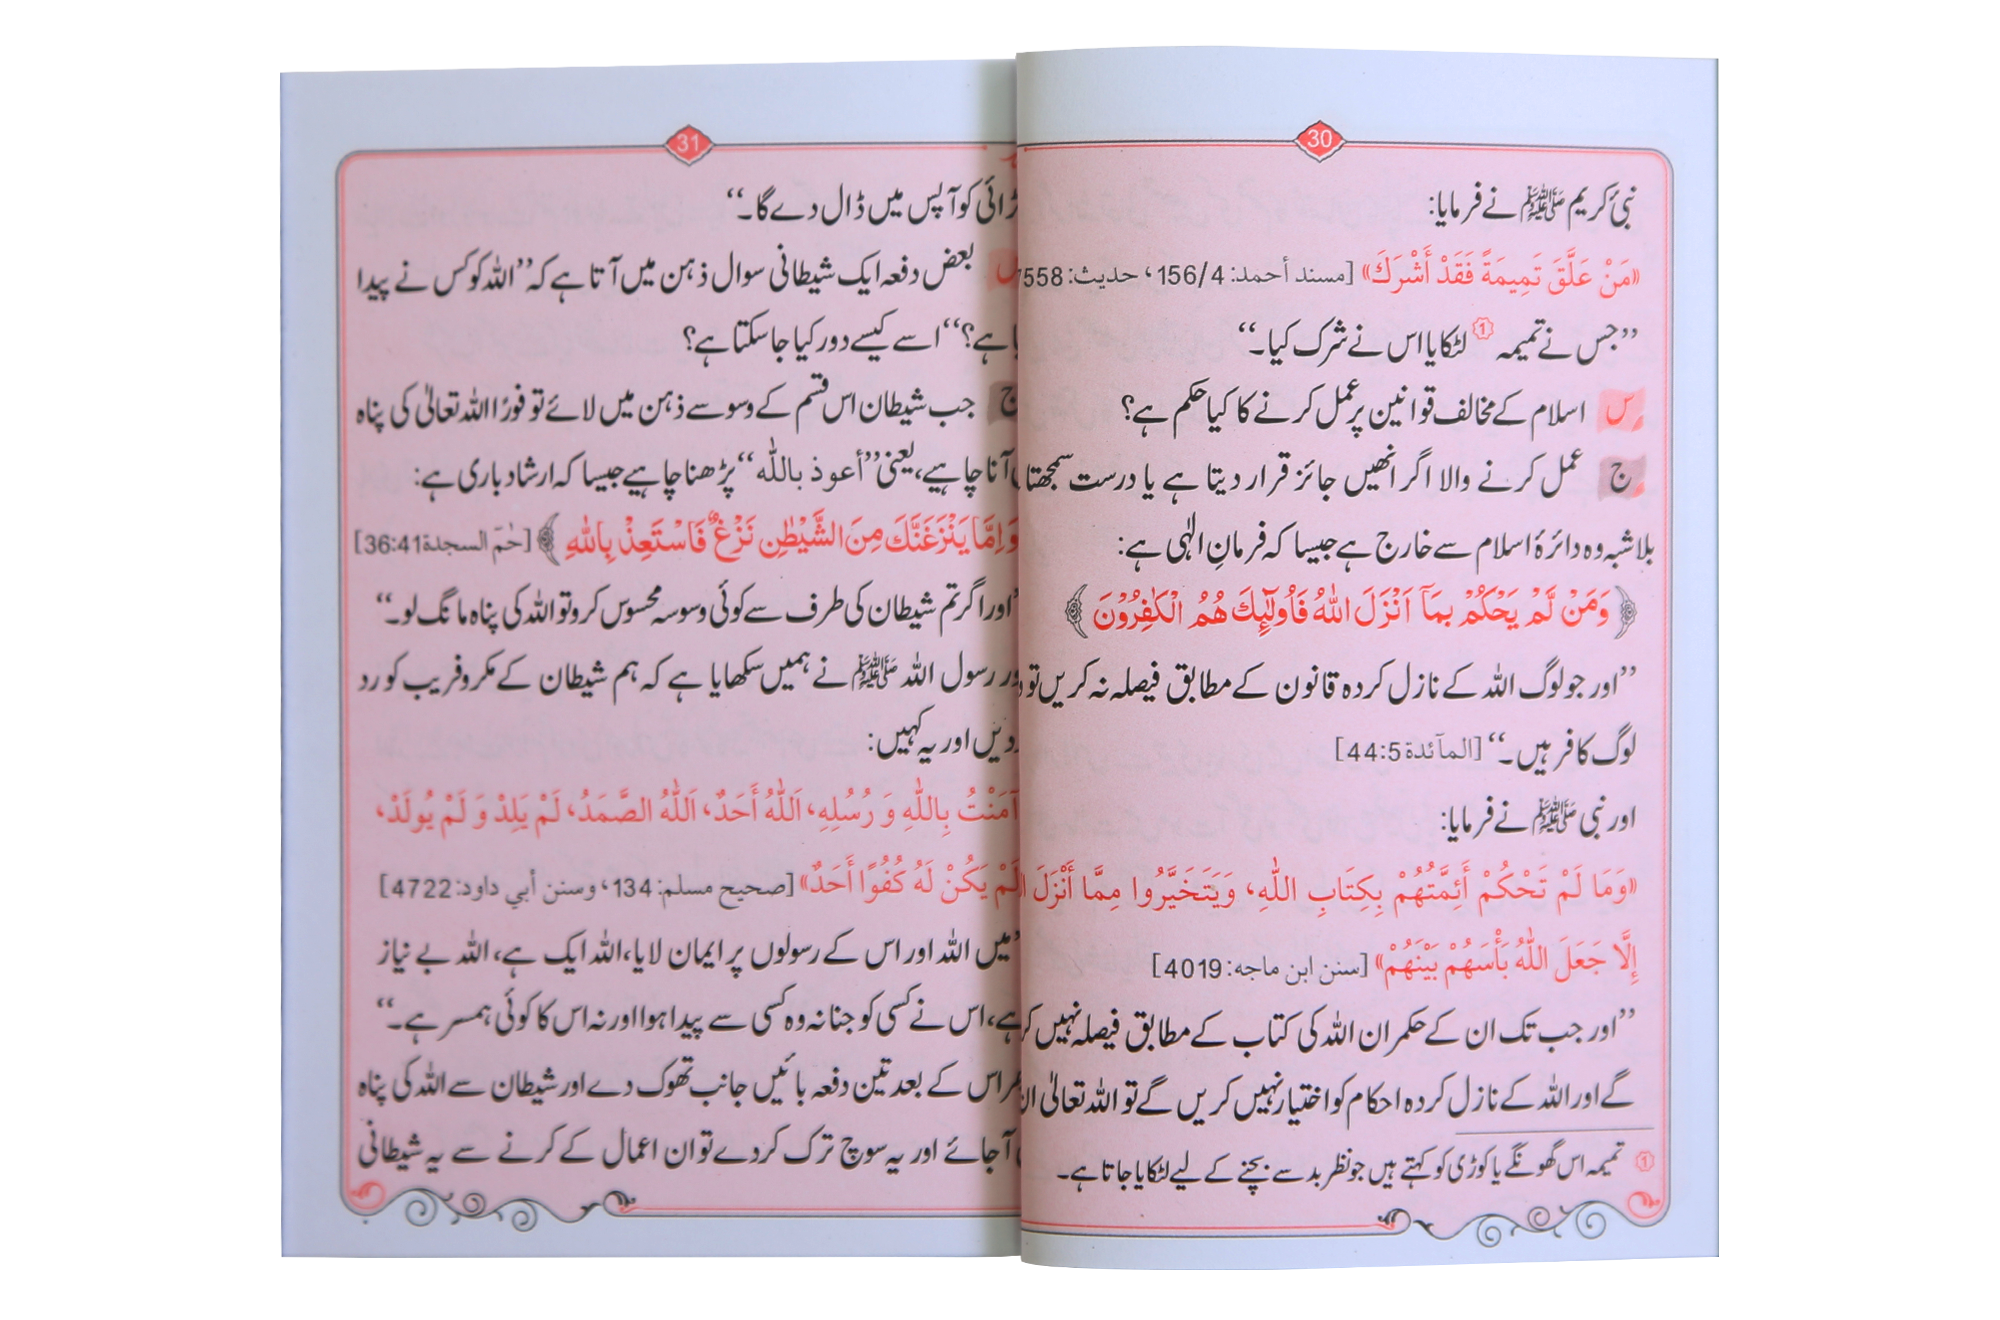 30
نبیٔ کریم ﷺ نے فرمایا:
«مَنْ عَلَّقَ تَمِيمَةً فَقَدْ أَشْرَكَ» [مسند أحمد: 156/4، حديث: 7558
’’جس نے تمیمہ ① لٹکایا اس نے شرک کیا۔‘‘
س اسلام کے مخالف قوانین پر عمل کرنے کا کیا حکم ہے؟
ج عمل کرنے والا اگر انھیں جائز قرار دیتا ہے یا درست سمجھتا
بلاشبہ وہ دائرۂ اسلام سے خارج ہے جیسا کہ فرمانِ الٰہی ہے:
﴿وَمَنْ لَّمْ يَحْكُمْ بِمَآ اَنْزَلَ اللّٰهُ فَاُولٰٓئِكَ هُمُ الْكٰفِرُوْنَ﴾
’’اور جو لوگ اللہ کے نازل کردہ قانون کے مطابق فیصلہ نہ کریں تو
لوگ کافر ہیں۔‘‘ [المآئدۃ 44:5]
اور نبی ﷺ نے فرمایا:
«وَمَا لَمْ تَحْكُمْ أَئِمَّتُهُمْ بِكِتَابِ اللّٰهِ، وَيَتَخَيَّرُوا مِمَّا أَنْزَلَ
إِلَّا جَعَلَ اللّٰهُ بَأْسَهُمْ بَيْنَهُمْ» [سنن ابن ماجه: 4019]
’’اور جب تک ان کے حکمران اللہ کی کتاب کے مطابق فیصلہ نہیں
گے اور اللہ کے نازل کردہ احکام کو اختیار نہیں کریں گے تو اللہ تعالیٰ
① تمیمہ اس گھونگے یا کوڑی کو کہتے ہیں جو نظر بد سے بچنے کے لیے لٹکایا جاتا ہے۔
31
کو آپس میں ڈال دے گا۔‘‘
س بعض دفعہ ایک شیطانی سوال ذہن میں آتا ہے کہ ’’اللہ کو کس نے پیدا
ہے؟‘‘ اسے کیسے دور کیا جا سکتا ہے؟
ج جب شیطان اس قسم کے وسوسے ذہن میں لائے تو فورًا اللہ تعالیٰ کی پناہ
آنا چاہیے، یعنی ’’أعوذ باللّٰه‘‘ پڑھنا چاہیے جیسا کہ ارشاد باری ہے:
وَاِمَّا يَنْزَغَنَّكَ مِنَ الشَّيْطٰنِ نَزْغٌ فَاسْتَعِذْ بِاللّٰهِ﴾ [حٰمٓ السجدة 36:41]
’’اور اگر تم شیطان کی طرف سے کوئی وسوسہ محسوس کرو تو اللہ کی پناہ مانگ لو۔‘‘
رسول اللہ ﷺ نے ہمیں سکھایا ہے کہ ہم شیطان کے مکر و فریب کو رد
دیں اور یہ کہیں:
آمَنْتُ بِاللّٰهِ وَ رُسُلِهِ، اَللّٰهُ أَحَدٌ، اَللّٰهُ الصَّمَدُ، لَمْ يَلِدْ وَ لَمْ يُولَدْ،
لَمْ يَكُنْ لَهُ كُفُوًا أَحَدٌ» [صحيح مسلم: 134، وسنن أبي داود: 4722]
’’میں اللہ اور اس کے رسولوں پر ایمان لایا، اللہ ایک ہے، اللہ بے نیاز
ہے، اس نے کسی کو جنا نہ وہ کسی سے پیدا ہوا اور نہ اس کا کوئی ہمسر ہے۔‘‘
اس کے بعد تین دفعہ بائیں جانب تھوک دے اور شیطان سے اللہ کی پناہ
آجائے اور یہ سوچ ترک کر دے تو ان اعمال کے کرنے سے یہ شیطانی